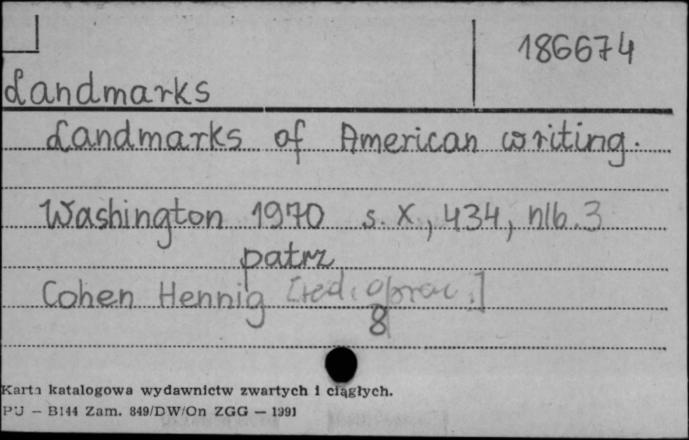 186674
Landmarks
Landmarks of American writing.
Washington 1970 s. X, 434, nlb. 3
patrz
Cohen Hennig [red. i oprac.]
8
Karta katalogowa wydawnictw zwartych i ciągłych.
PU — B144 Zam. 849/DW/On ZGG — 1991